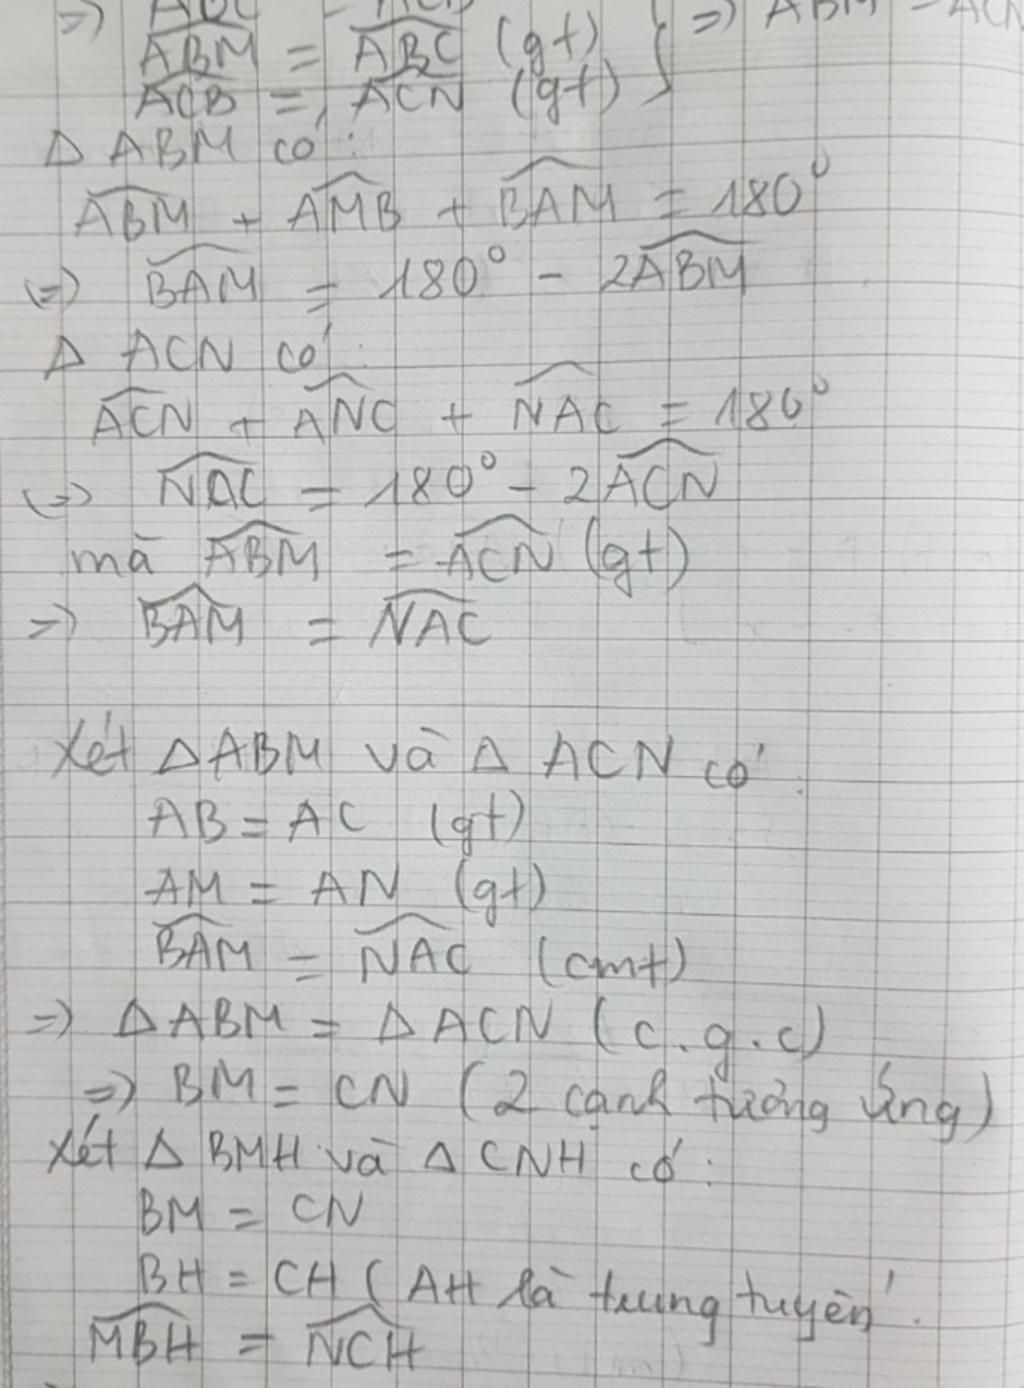 => ABC = ACB
ABM = ABC (gt) } => ABM = ACN
ACB = ACN (gt)
Δ ABM có:
ABM + AMB + BAM = 180°
(=) BAM = 180° - 2ABM
Δ ACN có:
ACN + ANC + NAC = 180°
(=> NAC = 180° - 2ACN
mà ABM = ACN (gt)
=> BAM = NAC
Xét Δ ABM và Δ ACN có:
AB = AC (gt)
AM = AN (gt)
BAM = NAC (cmt)
=> Δ ABM = Δ ACN (c.g.c)
=> BM = CN (2 cạnh tương ứng)
Xét Δ BMH và Δ CNH có:
BM = CN
BH = CH (AH là trung tuyến.
MBH = NCH